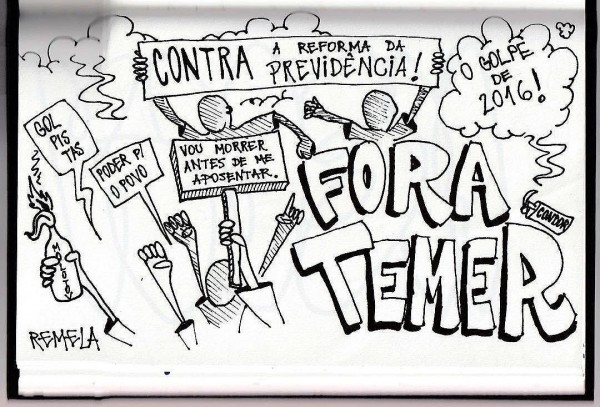 CONTRA A REFORMA DA
PREVIDÊNCIA!
O GOLPE
DE
2016!
GOL
PIS
TAS
PODER P/
O POVO
VOU MORRER
ANTES DE ME
APOSENTAR.
FORA
TEMER
CONDOR
REMELA